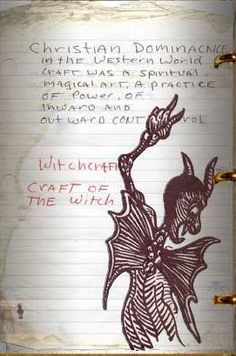 Christian Dominacnce
in the Western World
craft was a spiritual
magical art, a practice
of Power, of
inward and
out ward control
Witchcraft
craft of
the witch